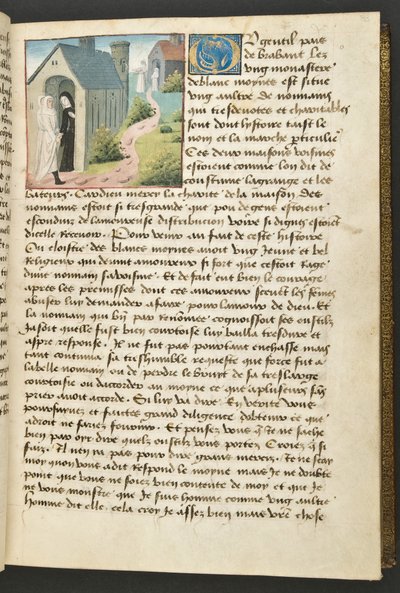 Ou gentil pais
de brabant lez
ung monastere
de blanc moynes est situe
ung aultre de nonnains
qui tres devotes et charitables
sont dont l'hystoire taist le
nom et la marche particuliere
Ces deux maisons voisines
estoient comme l'on dit de
coustume la grange et les
bateurs. Car dieu mercy la charite de la maison des
nonnains estoit si tres grande que pou de gens estoient
escondiz de lamoureuse distribucion voire si dignes estoient
dicelle recevoir. Pour venir au fait de ceste histoire
Ou cloistre des blancs moynes avoit ung jeune et bel
Religieux qui devint amoureux si fort que cestoit rage
dune nonnain sa voisine. Et de fait eut bien le courage
apres les premisses dont ces amoureux scevent les femmes
abuser luy demander a faire pour lamour de dieu. Et
la nonnain qui bien par renommee cognoissoit ses oustilz
Jasoit quelle fust bien courtoise luy bailla tresdure et
aspre response. Il ne fut pas pourtant enchasse mais
tant continua sa treshumble requeste que force fut a
la belle nonnain ou de perdre le bruit de sa treslarge
courtoisie ou daccorder au moyne ce que a plusieurs sans
prier avoit accorde. Si luy va dire. En verite vous
poursuivez et faictes grand diligence dobtenir ce que
a droit ne sariez fournir. Et pensez vous que Je ne sache
bien par oyr dire quelz oustilz vous portez. Croiez que si
faiz. Il n'y a pas pour dire grans mercis. Je ne scay
moy quon vous a dit respond le moyne mais Je ne doubte
point que vous ne soiez bien contente de moy et que Je
ne vous monstre que Je suis homme comme ung aultre
homme dit elle. cela croy Je assez bien mais vostre chose